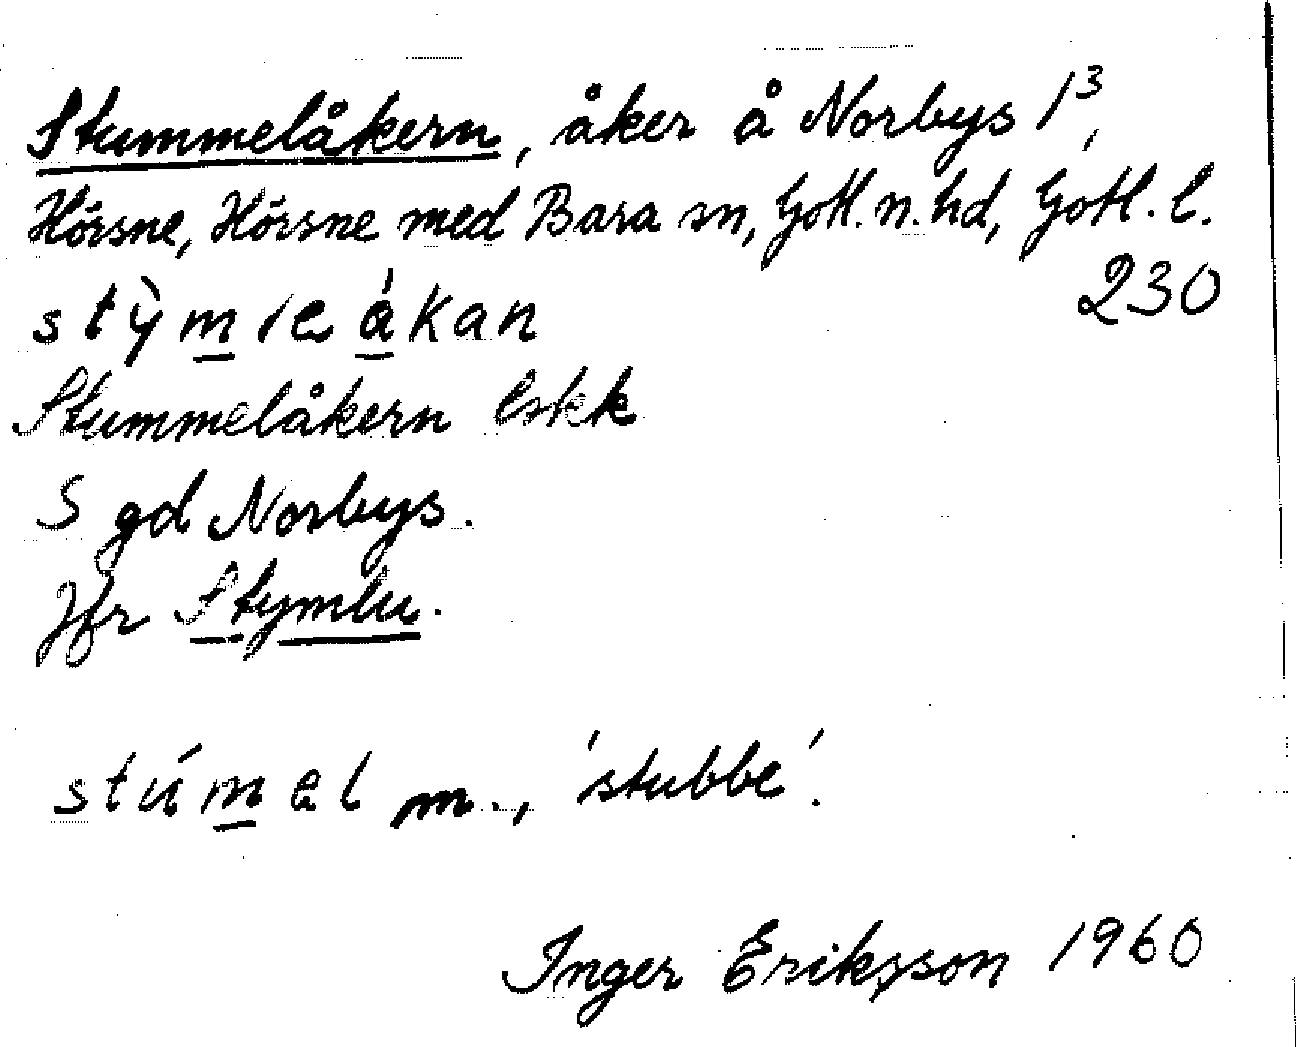 Stummelåkern, åker å Norbys 1³,
Hörsne, Hörsne med Bara sn, Gotl. n. hd, Gotl. l.
230
Stummelåkern Eskk
S gd Norbys.
Jfr Stymlu.
stúmel m., 'stubbe'.
Inger Eriksson 1960